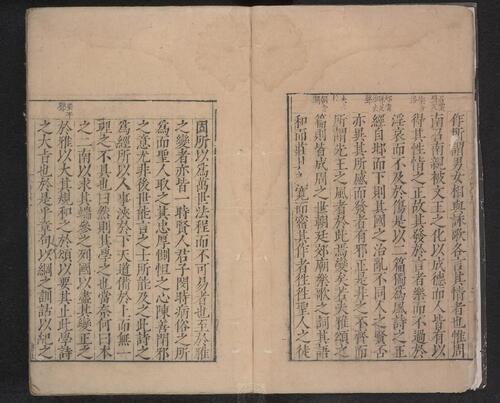 作所謂男女相與詠歌各言其情者也惟周
南召南親被文王之化以成德而人皆有以
得其性情之正故其發於言者樂而不過於
淫哀而不及於傷是以二篇獨為風詩之正
經自邶而下則其國之治亂不同人之賢否
亦異其所感而發者有邪正是非之不齊而
所謂先王之風者於此焉變矣若夫雅頌之
篇則皆成周之世朝廷郊廟樂歌之詞其語
和而莊其義寬而密其作者往往聖人之徒
固所以為萬世法程而不可易者也至於雅
之變者亦皆一時賢人君子閔時病俗之所
為而聖人取之其忠厚惻怛之心陳善閉邪
之意尤非後世能言之士所能及之此詩之
為經所以人事浹於下天道備於上而無一
理之不具也曰然則其學之也當奈何曰本
之二南以求其端參之列國以盡其變正之
於雅以大其規和之於頌以要其止此學詩
之大旨也於是乎章句以綱之訓詁以紀之